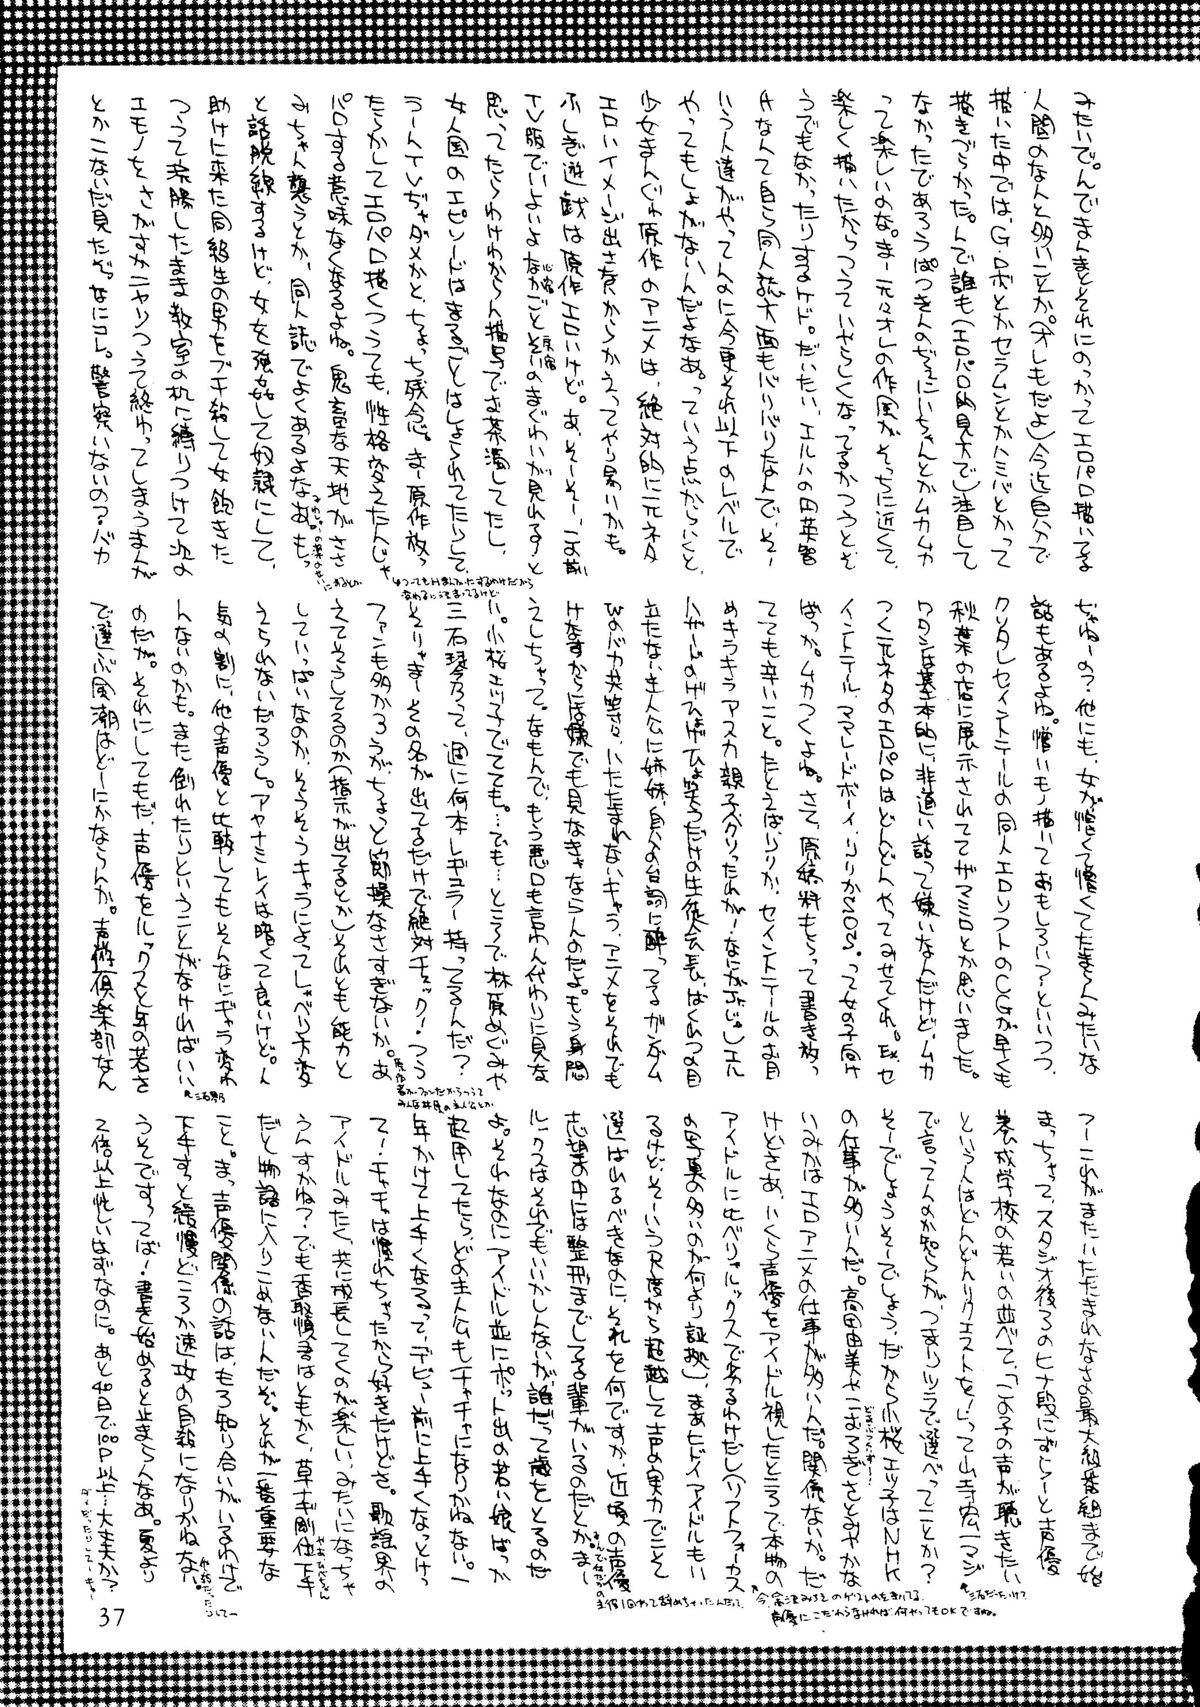 みたいで。んでまんまとそれにのっかってエロパロ描いてる
人間のなんと多いことか。(オレもだよ)今迄自分で
描いた中では、Gロボとかセラムンとかハミパとかって
描きづらかった。んで誰も(エロパロ的見方で)注目して
なかったであろうぱっきんのぢぇにいちゃんとかムカムカ
って楽しいのな。まー元々オレの作風がそっちに近くて、
楽しく描いたからっつっていやらしくなってるかっつうとそ
うでもなかったりするケド。だいたい、エルハの田英智
Hなんて自ら同人誌方面もバリバリなんで、そー
いう人達がやってんのに今更それ以下のレベルで
やってもしょがないんだよなあ。っていう点からいくと、
少女まんがゃ原作のアニメは、絶対的に元ネタ
エロいイメージ出さないからかえってやり易いかも。
ふしぎ遊戯は原作エロいけど。あ、そーそー、この前
TV版でいよいよなかごとそいのまぐわいが見れると
思ってたらわけわからん描写でお茶濁してたし、
女人国のエピソードはまるごとはしょられてたらして、
うーんTVぢゃダメかと、ちょっち残念。まー原作放っ
たらかしてエロパロ描くっつうても、性格変えたんじゃ
パロする意味なくなるよね。鬼畜な天地がささ
みちゃん襲うとか、同人誌でよくあるよなあ。もっ
と話脱線するけど、女女強姦して奴隷にして、
助けに来た同級生の男をブチ殺して女飽きた
つって浣腸したまま教室の机に縛りつけて次の
エモノを、さがすかニヤリっつうて終わってしまうまんが
とかこないだ見たぞ。なにコレ。警察いないの?バカ
ぢゃねーの?他にも、女が憎くて憎くてたまらんみたいな
話もあるよね。憎いモノ描いておもしろい?といいつつ、
クソタレセイントテールの同人エロソフトのCGが早くも
秋葉の店に展示されててザマミロとか思いました。
ワタシは基本的に非道い話って嫌いなんだけど、ムカ
つく元ネタのエロパロはどんどんやってみせてくれ。Ex.セ
イントテール、ママレードボーイ、りりかSOS。って女の子向け
ばっか。ムカつくよね。さて、原稿料もらって書き放っ
てても辛いこと。たとえばりりか、セイントテールのお目
めキラキラアスカ親子ベタリったれがーなにがぶじゃ)エル
ハザードのげひょげひょ笑うだけの生徒会長、ばくれつの目
立たない主人公に姉妹、自分の台詞に酔ってるガンダム
Wのバカ共等々、いたたまれないキャラ、アニメをそれでも
けなすからには嫌でも見なきゃならんのだよ。もう身悶
えしちゃって。なもんで、もう悪口も言わん代わりに見な
い。小桜エツ子でてても。…でも…ところで林原めぐみや
三石琴乃って、週に何本レギュラー持ってるんだ?
とりゃまーその名が出てるだけで絶対チェック!つう
ファンも多かろうが、ちょっと節操なさすぎないか。あ
えてそうしてるのか(指示が出てるとか)それとも能力と
していっぱいなのか、そうそうキャラによってしゃべり方変
えられないだろうし。アヤナミレイは暗くて良いけど。人
気の割に、他の声優と比較してもそんなにギャラ変わ
んないのかも。また倒れたりということがなければいい
のだが。それにしてもだ、声優をルックスと年の若さ
で選ぶ風潮はどーにかならんか。声優倶楽部なん
つーこれがまたいたたまれなさの最大級番組まで始
まっちゃって、スタジオ後ろのヒナ段にずらーと声優
養成学校の若いの並べて、「この子の声が聴きたい
という人はどんどんリクエストを!」って山寺宏一マジ
で言ってんのか知らんが、つまりツラで選べってことか?
そーでしょうそーでしょう、だから小桜エツ子はNHK
の仕事が多いんだ。高田由美やこおろぎさとみやかな
いみかはエロアニメの仕事が多いんだ。関係ないか。だ
けどさあ、いくら声優をアイドル視したところで本物の
アイドルに比べりゃルックスで劣るわけだし(ソフトフォーカス
の写真の多いのが何より証拠)、まあヒドイアイドルもい
るけど、そーいう尺度から超越して声の実力でこそ
選ばれるべきなのに、それを何ですか、近頃の声優
志望の中には整形までしてる輩がいるのだとか。まー
ルックスはそれでもいいかしんないが、誰だって歳をとるのだ
よ。それなのにアイドル並にポット出の若い娘ばっか
起用してたら、どの主人公もチャチャになりかねない。一
年かけて上手くなるって、デビュー前に上手くなっとけっ
て!チャチャは慣れちゃったから好きだけどさ。歌謡界の
アイドルみたく、共に成長してくのが楽しい、みたいになっちゃ
うんすかね?でも香取慎吾はともかく、草ナギ剛位下手
だと物語に入りこめないんだぞ。それが一番重要な
こと。まっ、声優関係の話は、もろ知り合いがいるわけで
下手すっと緩慢どころか速攻の自殺になりかねな
うそですってば!書き始めると止まらんなあ。夏より
2倍以上忙しいはずなのに。あと4日で100P以上…大丈夫か?
37